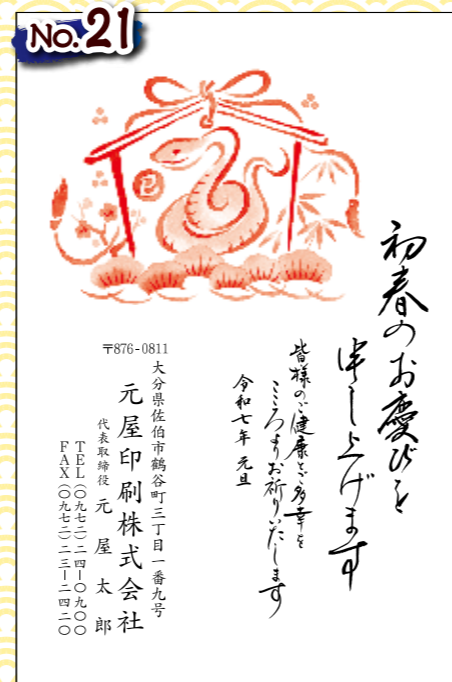 No.21
巳
初春のお慶びを
申し上げます
皆様のご健康とご多幸を
こころよりお祈りいたします
令和七年 元旦
〒876-0811
大分県佐伯市鶴谷町三丁目一番九号
元屋印刷株式会社
代表取締役 元屋太郎
TEL(〇九七二)二四-〇九〇〇
FAX(〇九七二)二三-二四二〇